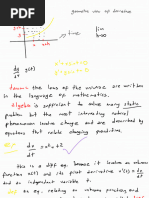 geometric view of derivative
time
lim
h→0
dy
dx
y(t)
the laws of the universe are written
in the language of mathematics.
Algebra is sufficient to solve many static
problem but the most interesting natural
phenomenon involve change and are described by
equations that relate changing quantities.
This is a diff eq. because it involve an unknown
function y(t) and its first derivative y'(t) = dy
dt
and an independent variable
eq. relating an unknown function and